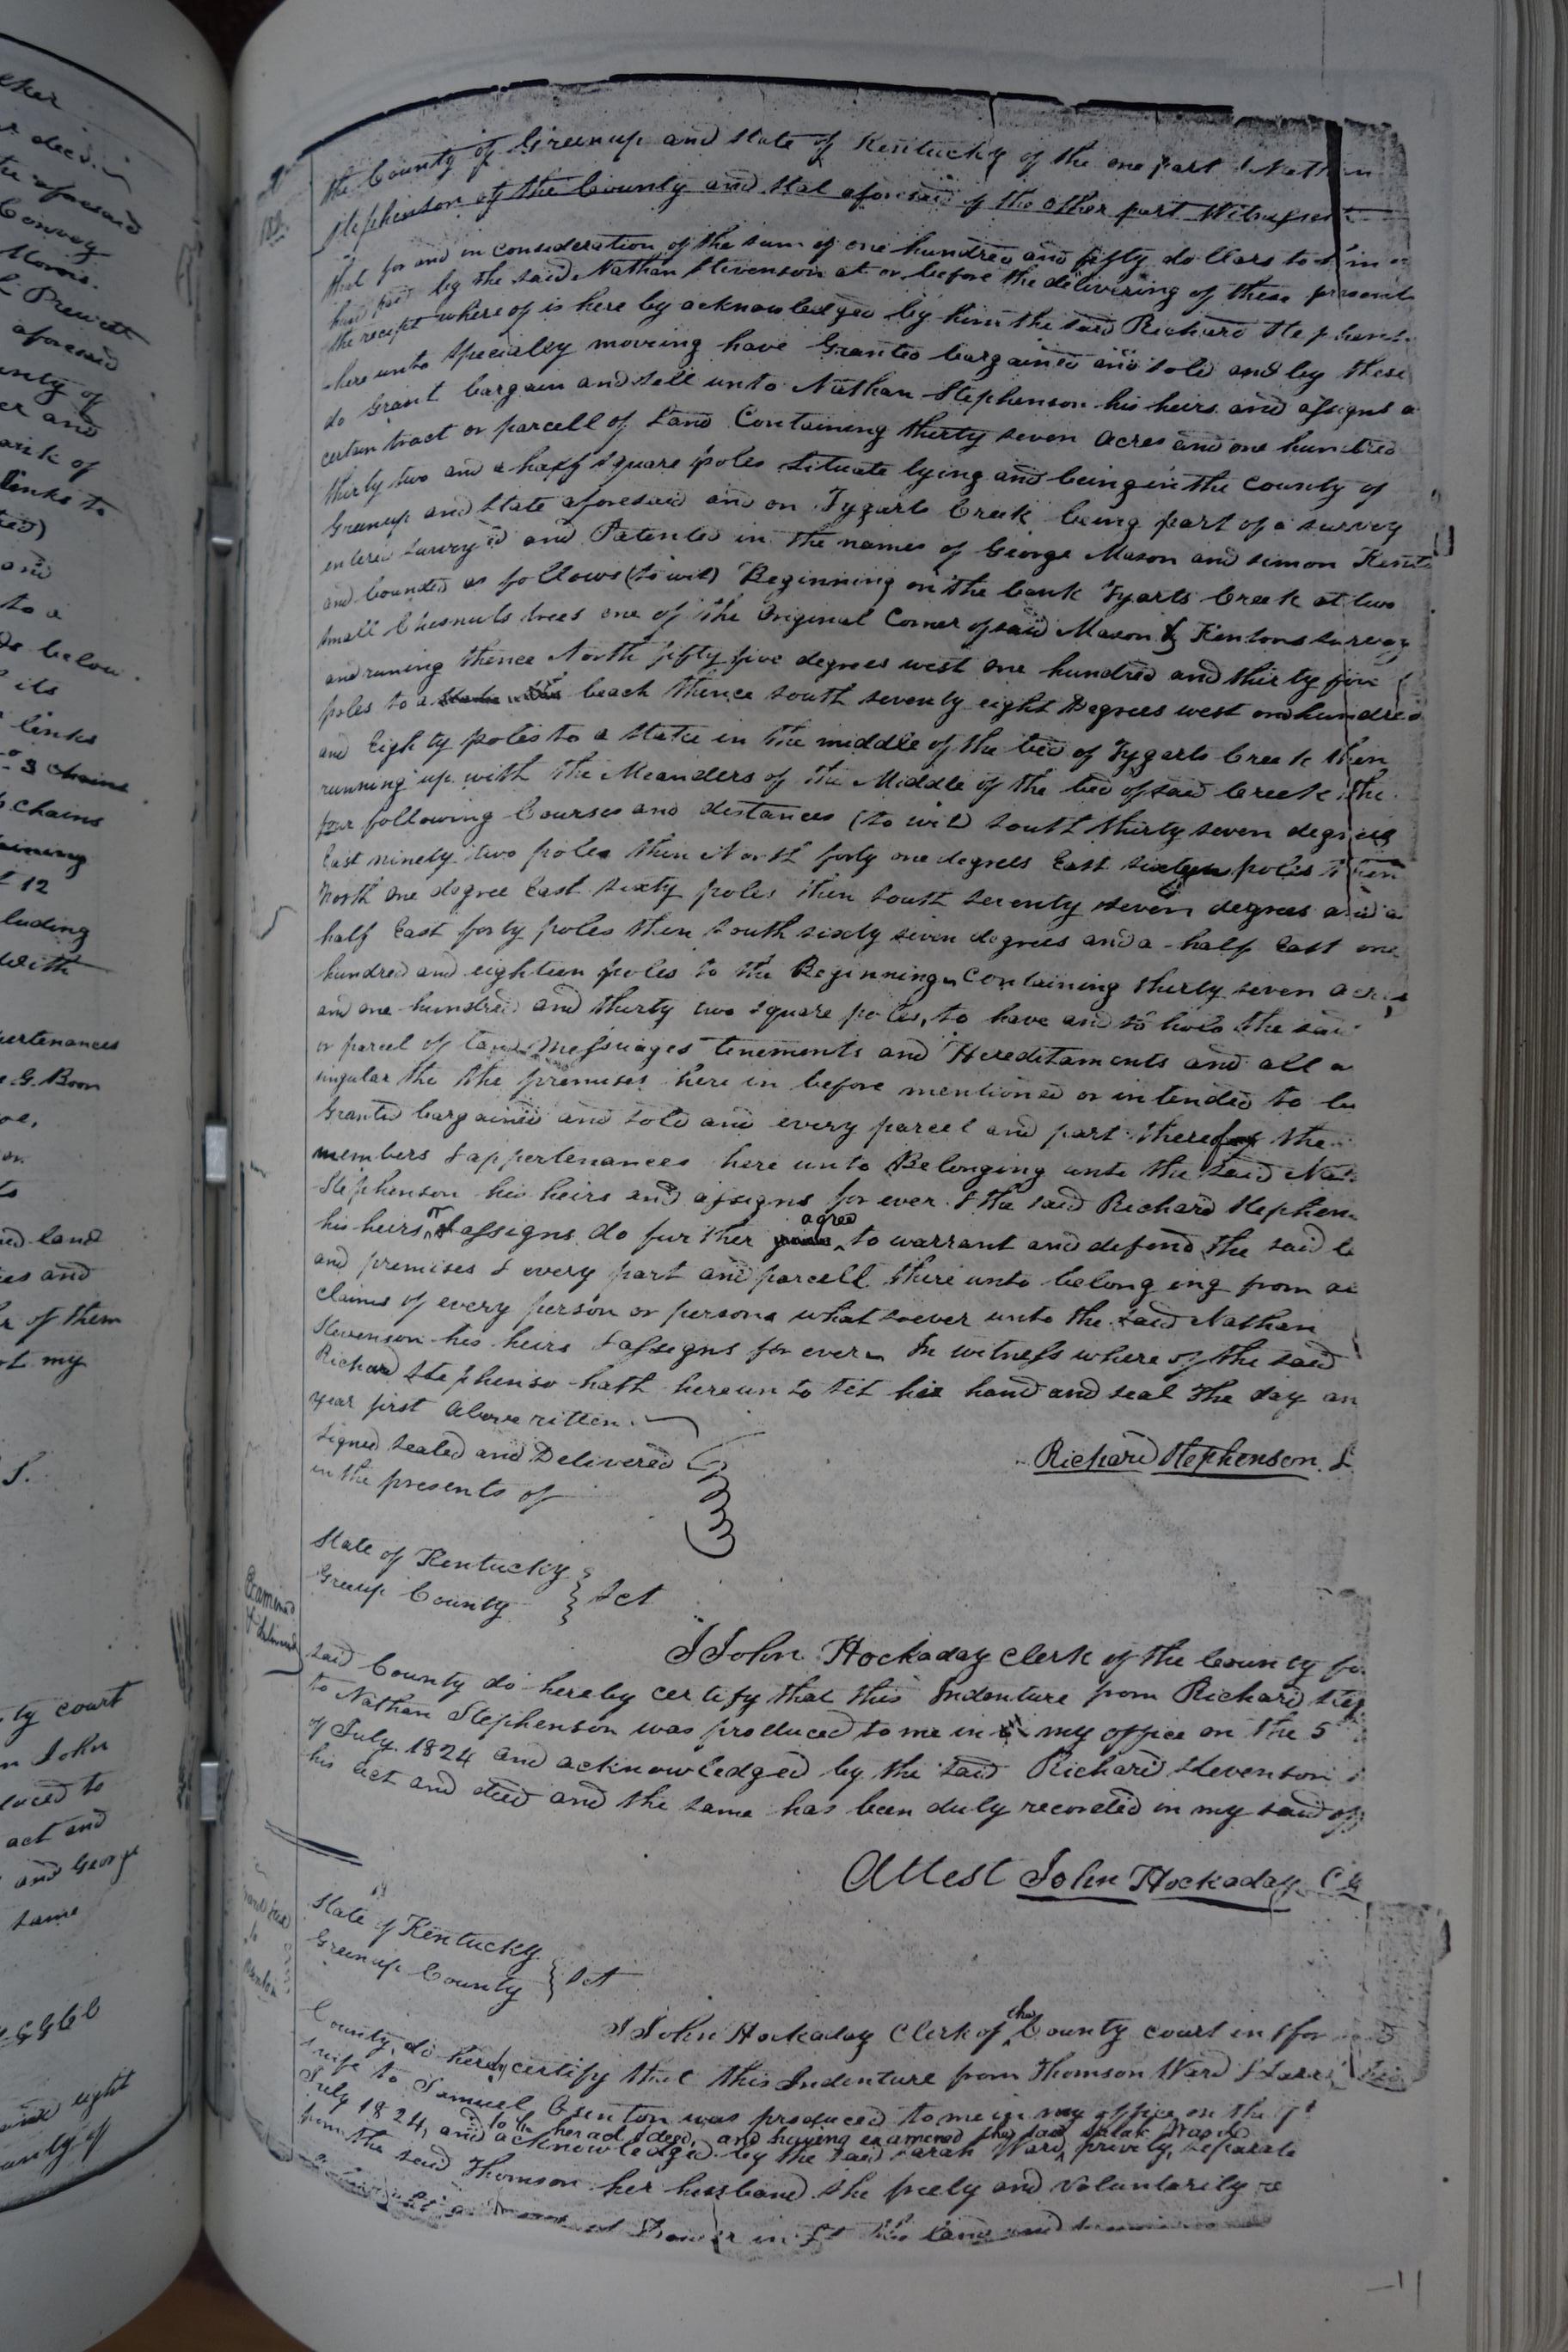 the County of Greenup and State of Kentucky of the one part & Nathan
Stephenson of the County and Stat aforesaid of the other part Witnesseth
that for and in consideration of the sum of one hundred and fifty dollars to him in
hand paid by the said Nathan Stevenson at or before the delivering of these presents
the receipt where of is here by acknowledged by him the said Richard Stephens
here unto specially moving have Granted bargained and sold and by these
do grant bargain and sell unto Nathan Stephenson his heirs and assigns a
certain tract or parcell of Land Containing thirty seven acres and one hundred
thirty two and a half square poles Situate lying and being in the County of
Greenup and State aforesaid and on Tygarts Creek being part of a survey
entered survey'd and Patented in the names of George Mason and simon Kento
and bounded as follows (to wit) Beginning on the bank Tyarts Creek at two
small Chesnuts trees one of the Original Corner of said Mason & Kentons survey
and runing thence North fifty five degrees west one hundred and thirty five
poles to a beach thence south seventy eight Degrees west one hundred
and Eighty poles to a stake in the middle of the bed of Tygarts Creek then
running up with the Meanders of the Middle of the bed of said Creek the
four following Courses and distances (to wit) south thirty seven degrees
East ninety two poles then North forty one degrees East sixteen poles then
North one degree East sixty poles then south seventy seven degrees and a
half East forty poles then south sixty seven degrees and a half East one
hundred and eighteen poles to the Beginning Containing thirty seven acres
and one hundred and thirty two square poles, to have and to hold the said
or parcel of land Messuages tenements and Hereditaments and all a
singular the the premises here in before mentioned or intended to be
Granted bargained and sold and every parcel and part thereof the
members & appertenances here unto Belonging unto the said Nat
Stephenson his heirs and assigns for ever & the said Richard Stephen
his heirs or assigns do further agree to warrant and defend the said l
and premises & every part and parcell there unto belong ing from al
claims of every person or persons what soever unto the said Nathan
Stevenson his heirs & assigns for ever In witness where of the said
Richard Stephenso hath hereunto set his hand and seal the day an
year first above ritten.
Signed sealed and Delivered
in the presents of
Richard Stephenson. S
State of Kentucky
Greeup County } Sct
Examined
& delivered
I John Hockaday Clerk of the County for
said County do hereby certify that this Indenture from Richard Step
to Nathan Stephenson was produced to me in my office on the 5
of July 1824 and acknowledged by the said Richard Stevenson
his act and deed and the same has been duly recorded in my said off
Attest John Hockaday Clk
State of Kentucky
Greenup County } Sct
I John Hockaday Clerk of the County court in & for
County, do hereby certify that this Indenture from Thomson Ward & Sarah
wife to Samuel Osenton was produced to me in my office on the
July 1824, and acknowledged by the said Sarah Ward, privily, separate
to be her act & deed, and having examined the said Sarah Ward
from the said Thomson her husband she freely and Voluntarily